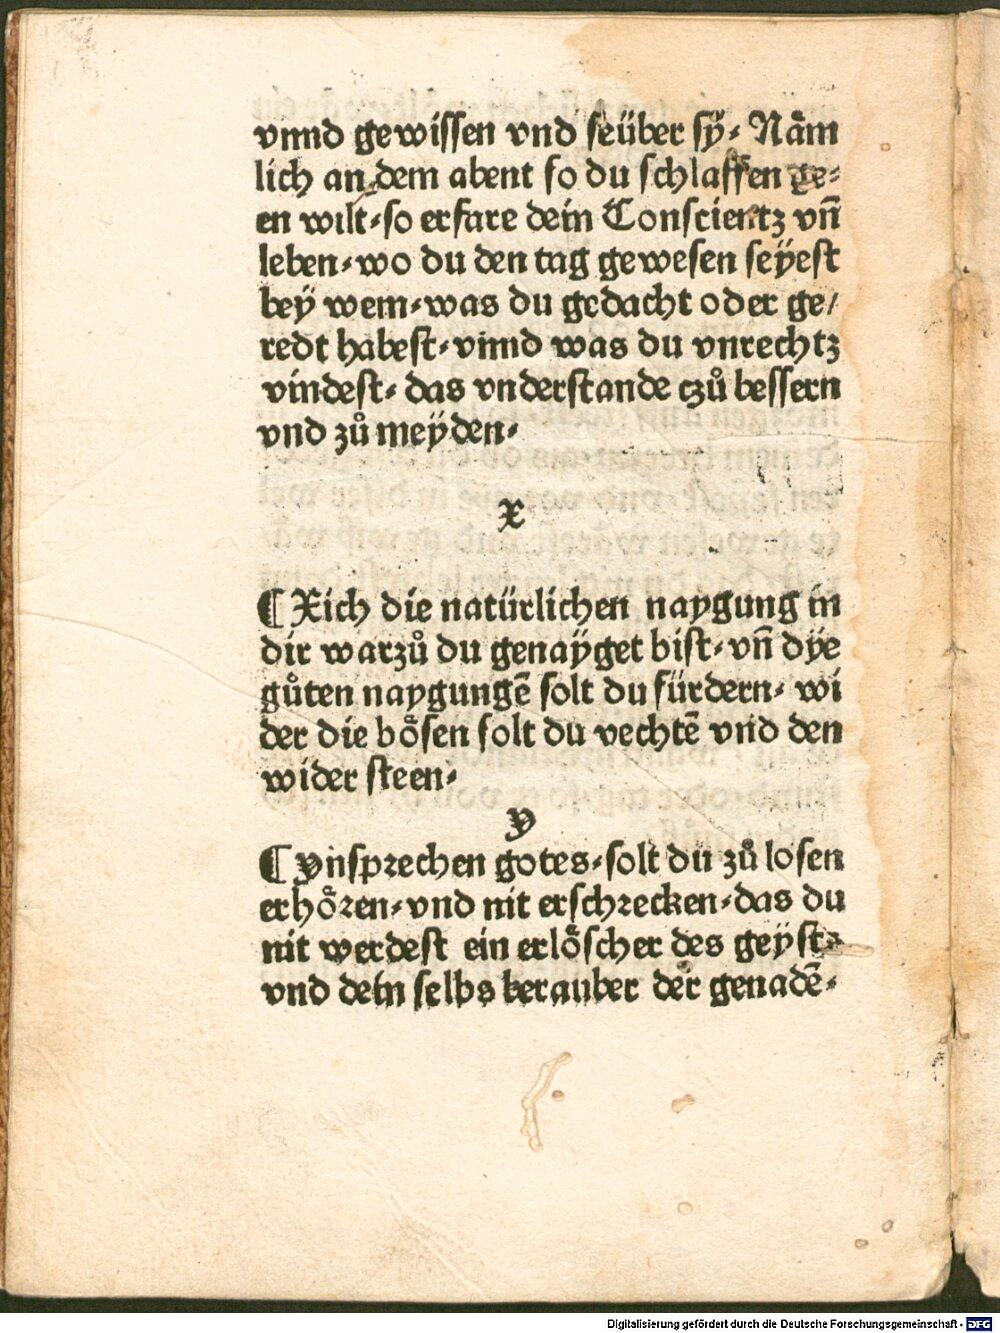 vnnd gewissen vnd seüber sÿ⸗ Nåm
lich an dem abent so du schlaffen ge⸗
en wilt⸗so erfare dein Conscientz vn̄
leben⸗wo du den tag gewesen seÿest
beÿ wem⸗was du gedacht oder ge/
redt habest⸗vnnd was du vnrechtz
vindest⸗ das vnderstande czů bessern
vnd zů meÿden⸗
x
¶ Xich die natürlichen naygung in
dir warzů du genaÿget bist⸗vn̄ dÿe
gůten naygungē solt du fürdern⸗ wi
der die bo᷑sen solt du vechtē vnd den
wider steen⸗
y
¶ ynsprechen gotes⸗solt du zů losen
erhoͤren⸗vnd nit erschrecken⸗das du
nit werdest ein erloͤscher des geÿsts
vnd dein selbs berauber der genadē⸗
Digitalisierung gefördert durch die Deutsche Forschungsgemeinschaft - DFG